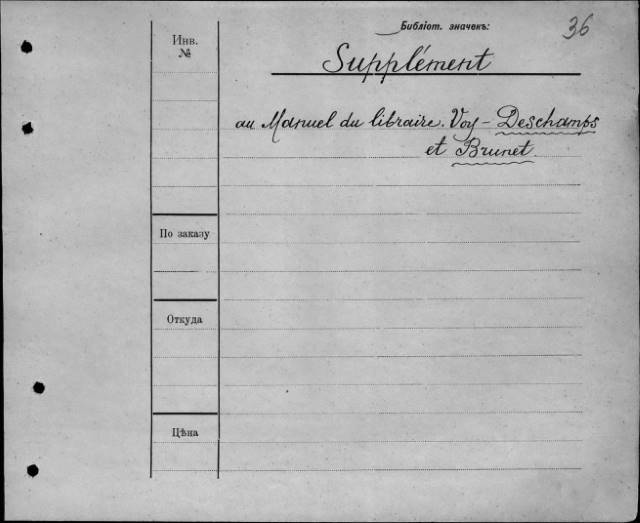 Библіот. значекъ:
36
Инв.
№
Supplément
au Manuel du libraire. Voy- Deschamps
et Brunet
По заказу
Откуда
Цѣна